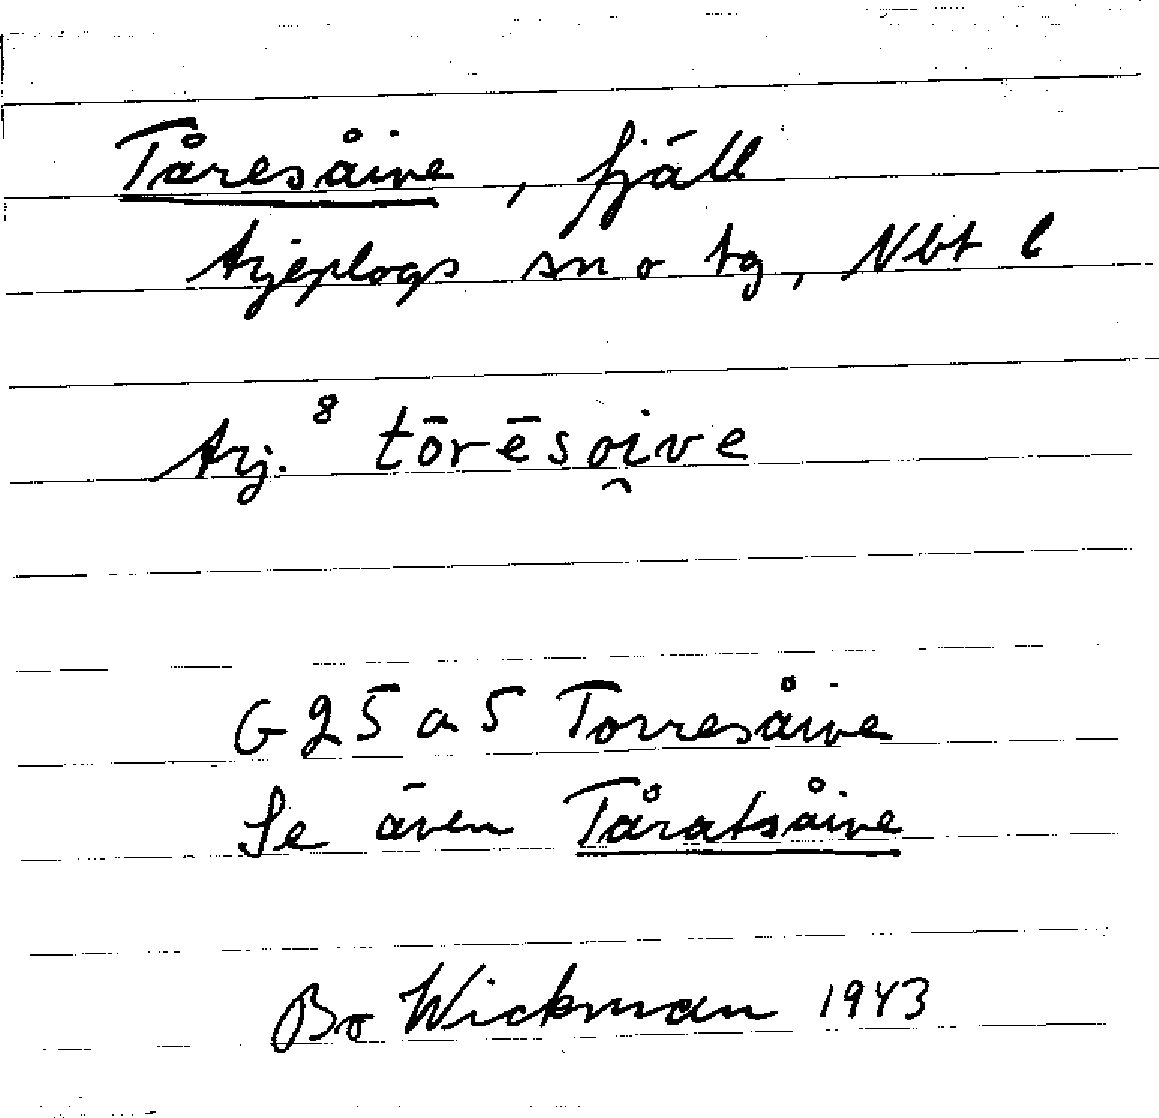 Tåresåive, fjäll
Arjeplogs sn o tg, Nbt l
Arj.⁸ tōrēsoi̯ve
G 25 a 5 Torresåive
Se även Tåratsåive
Bo Wickman 1943